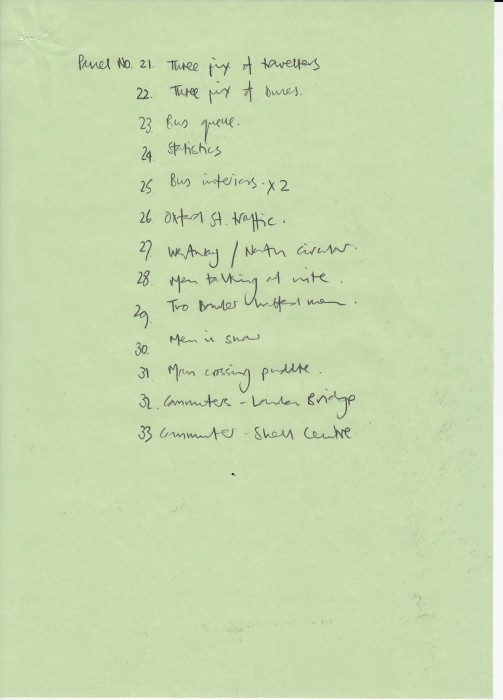 Panel No. 21. Three pix of travellers
22. Three pix of buses.
23 Bus queue.
24 Statistics
25 Bus interiors. x 2
26 Oxford St. traffic.
27 Westway / North circular.
28. Men talking at
29. Two Bowler hatted men.
30. Men in snow
31 Man crossing puddle.
32. Commuters - London Bridge
33 Commuter - Shell Centre